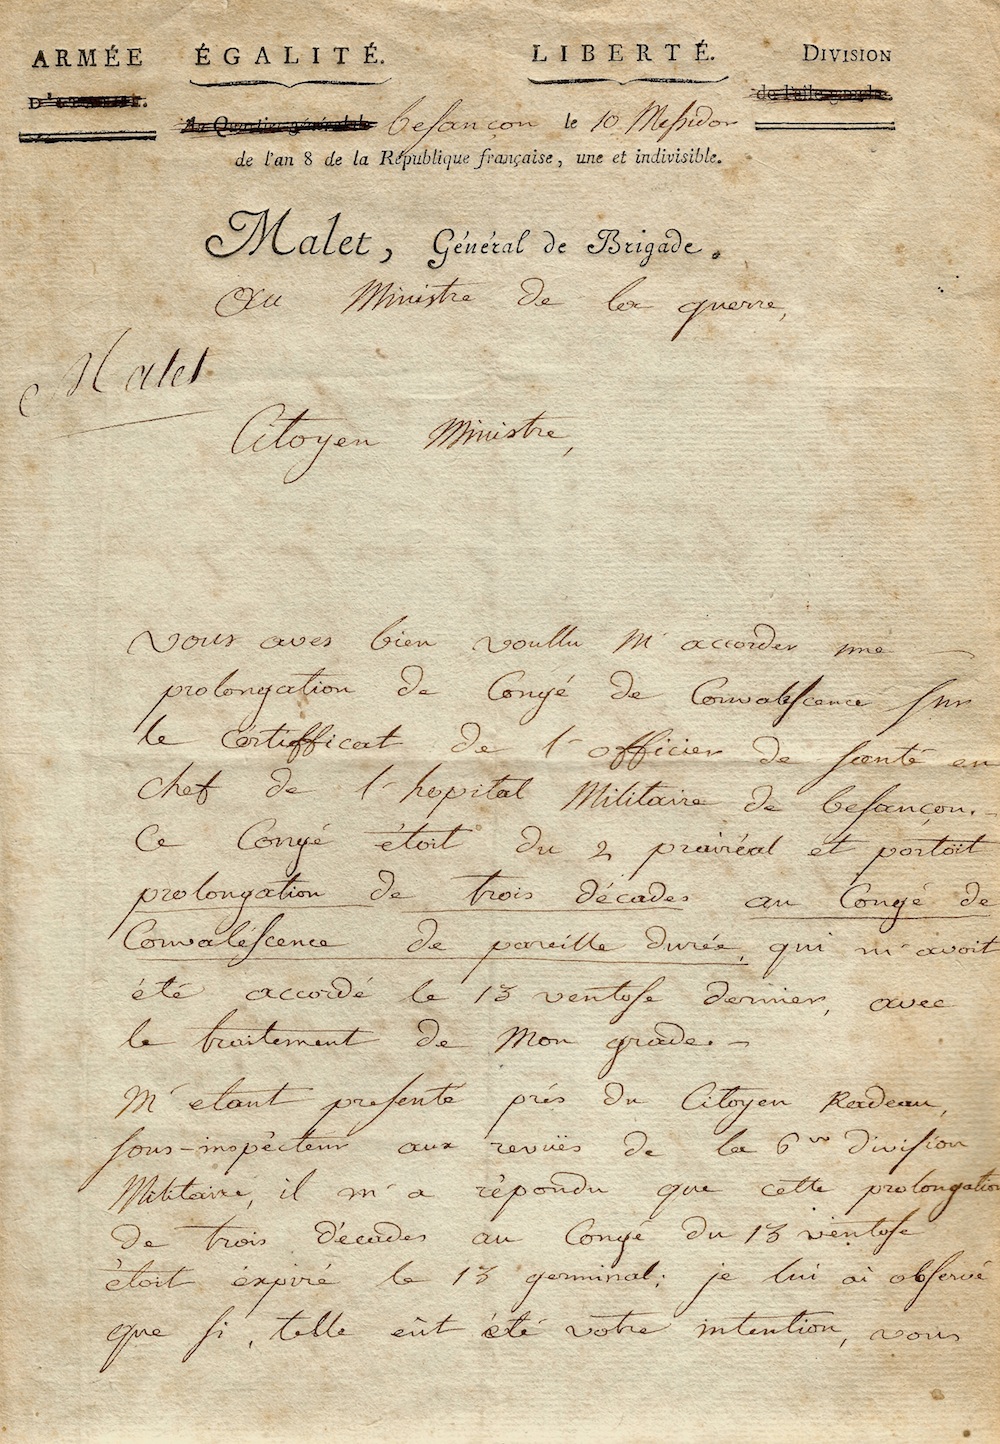 ARMÉE ÉGALITÉ. LIBERTÉ. DIVISION
Besançon le 10 Messidor
de l'an 8 de la République française, une et indivisible.
Malet, Général de Brigade.
Au Ministre de la guerre,
Malet
Citoyen Ministre,
vous aves bien voullu m'accorder une
prolongation de Congé de Convalescence sur
le certifficat de l'officier de santé en
chef de l'hopital Militaire de besançon.-
Ce Congé étoit du 2 prairéal et portoit
prolongation de trois décades au Congé de
Convaléscence de pareille durée, qui m'avoit
été accordé le 13 ventose dernier, avec
le traitement de Mon grade.-
M'etant presenté prés du Citoyen Radeau,
sous-inspécteur aux revuës de la 6me division
Militaire, il m'a répondu que cette prolongation
de trois décades au Congé du 13 ventose
étoit éxpiré le 13 germinal; je lui ai observé
que si, telle eût été votre intention, vous